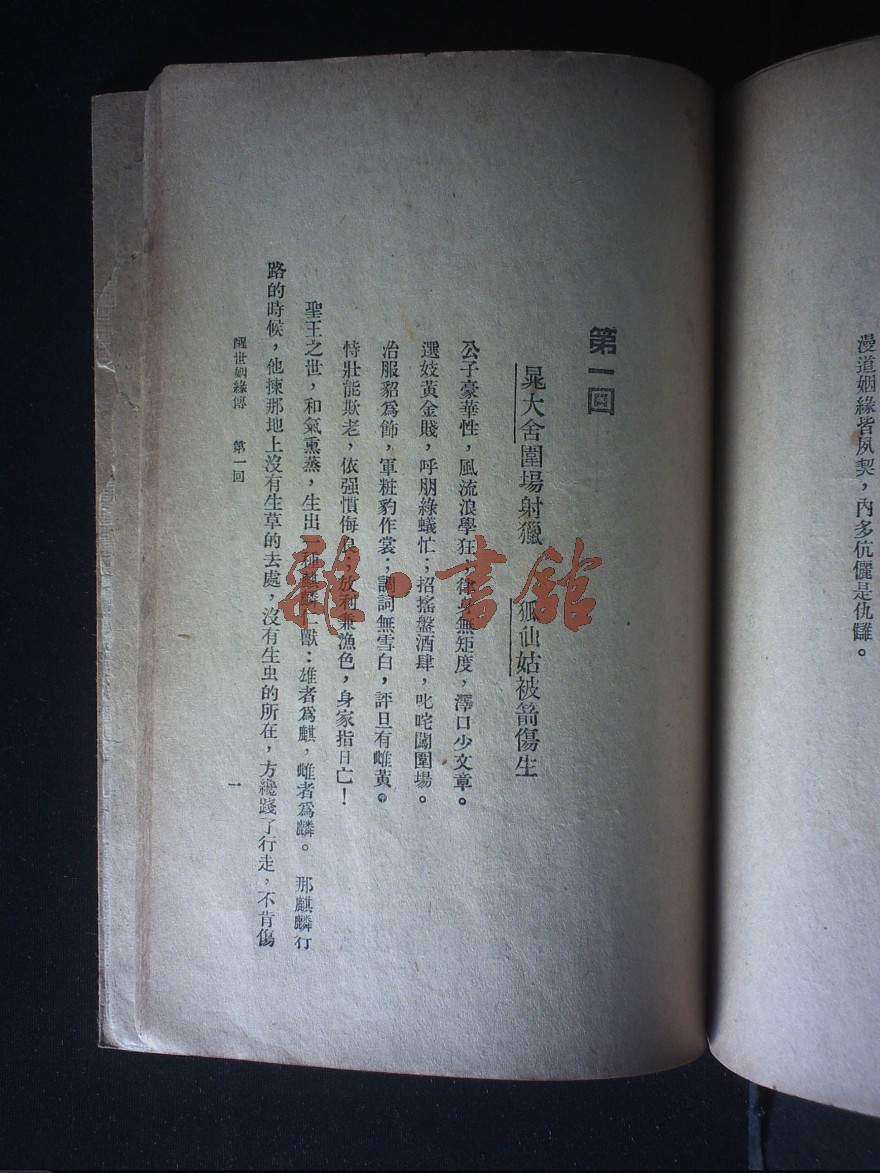 漫道姻緣皆夙契，內多伉儷是仇讎。
第一回
晁大舍圍場射獵　狐仙姑被箭傷生
公子豪華性，風流浪學狂；律身無矩度，澤口少文章。
選妓黃金賤，呼朋綠蟻忙；招搖盤酒肆，叱咤闖圍場。
冶服貂為飾，軍粧豹作裳；調詞無雪白，評旦有雌黃。
恃壯能欺老，依强慣侮良；放利兼漁色，身家指日亡！
聖王之世，和氣熏蒸，生出一種麒麟仁獸：雄者為麒，雌者為麟。那麒麟行
路的時候，他揀那地上沒有生草的去處，沒有生虫的所在，方纔踐了行走，不肯傷
醒世姻緣傳　第一回
一
雜·書館